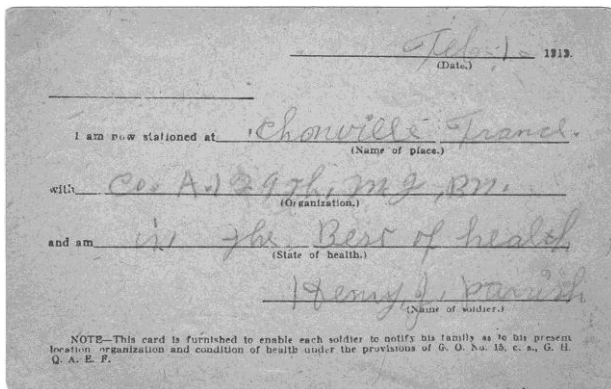 Feb. 1. 1919.
(Date.)
I am now stationed at Chonville France.
(Name of place.)
with Co. A. 129th, M G, BN.
(Organization.)
and am in the Best of health
(State of health.)
Henry J. Parrish
(Name of soldier.)
NOTE—This card is furnished to enable each soldier to notify his family as to his present
location, organization and condition of health under the provisions of G. O. No. 15, c. s., G. H.
Q. A. E. F.